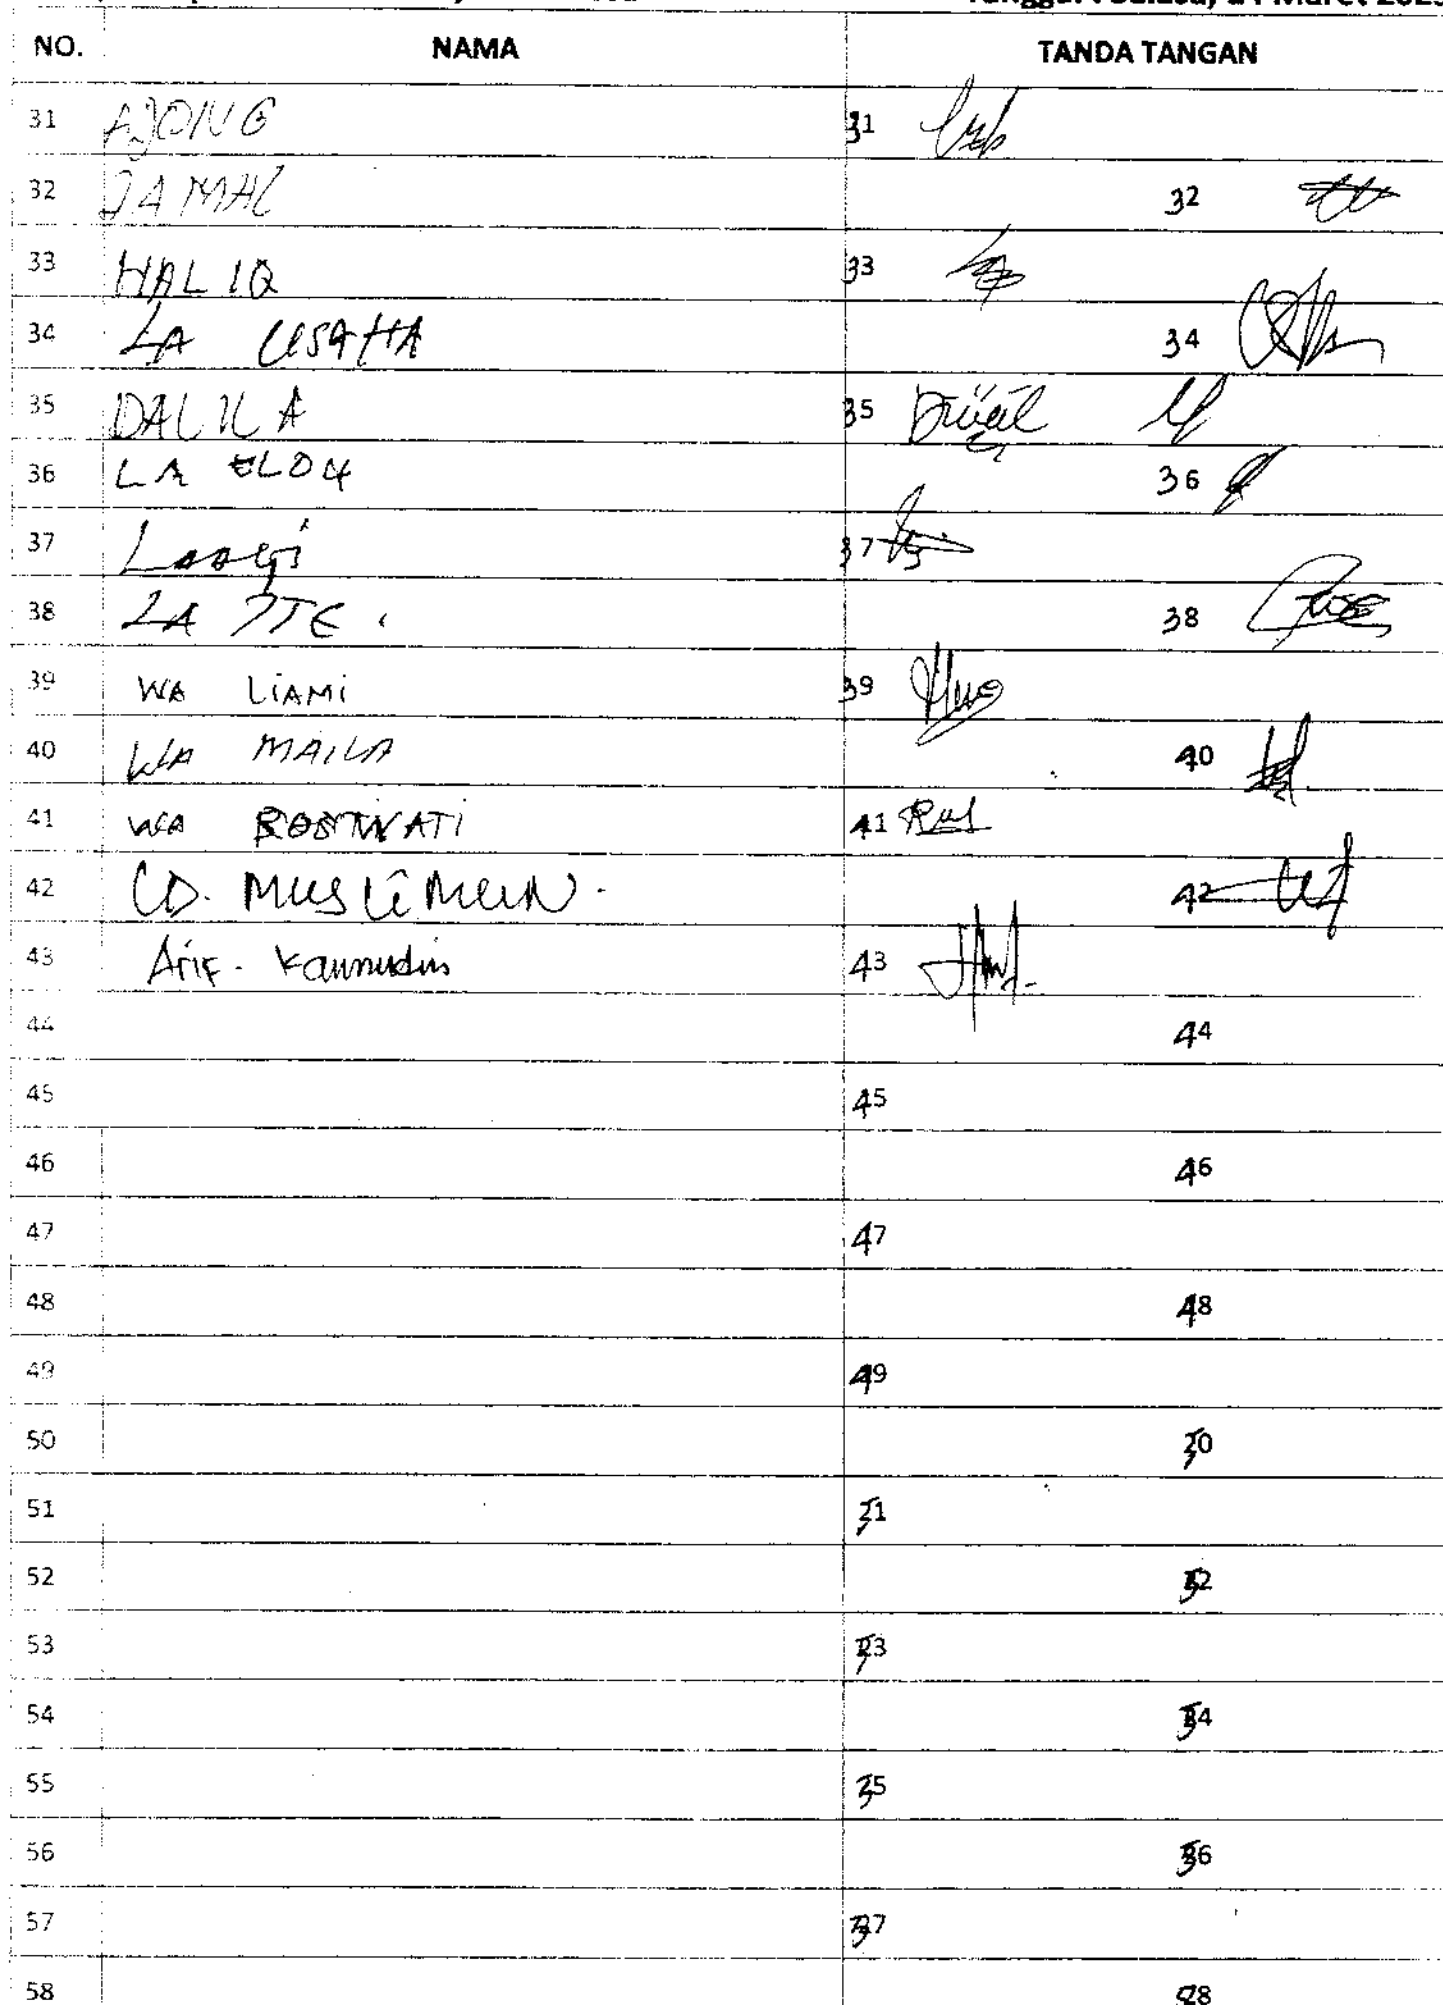 NO. NAMA TANDA TANGAN
31 AJONG 31
32 JAMAL 32
33 HALIQ 33
34 LA USAHA 34
35 DALILA 35
36 LA ELO 36
37 37
38 LA ITE. 38
39 WA LiAMi 39
40 WA MAILA 40
41 WA ROSTINATi 41 Rus
42 LD. MUSLiMUN. 42
43 Arif. Kaimudin 43
44 44
45 45
46 46
47 47
48 48
49 49
50 50
51 51
52 52
53 53
54 54
55 55
56 56
57 57
58 58